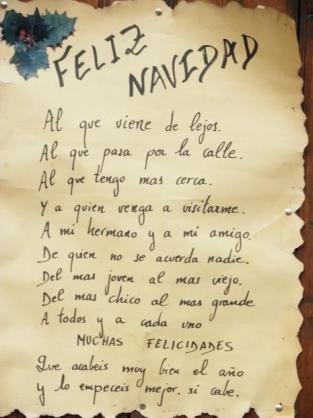 FELIZ
NAVIDAD
Al que viene de lejos.
Al que pasa por la calle.
Al que tengo mas cerca.
Y a quien venga a visitarme.
A mi hermano y a mi amigo.
De quien no se acuerda nadie.
Del mas joven al mas viejo.
Del mas chico al mas grande
A todos y a cada uno
MUCHAS FELICIDADES
Que acabeis muy bien el año
y lo empeceis mejor, si cabe.